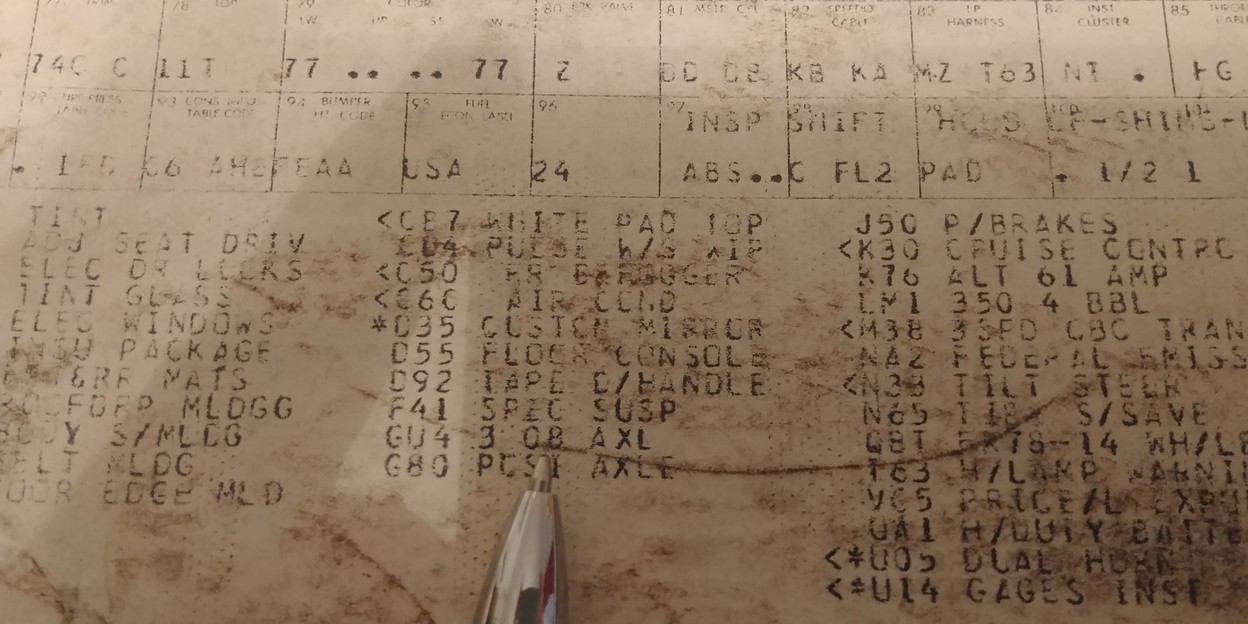 80 BRK VALVE 81 MSTR CYL 82 SPEEDO CABLE 83 I P HARNESS 84 INST CLUSTER 85
74C C 11T 77 •• •• 77 Z DD DB KB KA MZ T63 NT • HG
93 CONS INFO TABLE CODE 94 BUMPER HT CODE 95 FUEL ECON LABEL 96 97 INSP 98 SHIFT 99
C6 AH2FEAA USA 24 ABS••C FL2 PAD • 1/2 1
TINT <CB7 WHITE PAD TOP J50 P/BRAKES
ADJ SEAT DRIV CD4 PULSE W/S WIP <K30 CRUISE CONTRO
ELEC DR LOCKS <C50 RR DEFOGGER K76 ALT 61 AMP
TINT GLASS <C60 AIR COND LM1 350 4 BBL
ELEC WINDOWS *D35 CUSTOM MIRROR <M38 3SPD CBC TRAN
PACKAGE D55 FLOOR CONSOLE NA2 FEDERAL EMISS
&RR MATS D92 TAPE D/HANDLE <N33 TILT STEER
MLDGG F41 SPEC SUSP N65 TIRE S/SAVE
BODY S/MLDG GU4 3 08 AXL QBT FR78-14 WH/LE
BELT MLDG G80 POSI AXLE T63 H/LAMP WARNIN
DOOR EDGE MLD
UA1 H/DUTY BATTE
<*U05 DUAL HORN
<*U14 GAGES INST